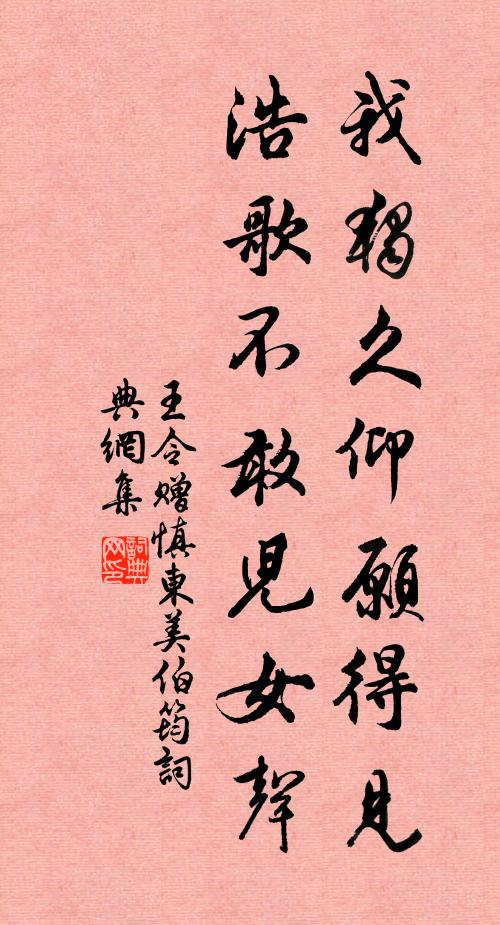 我獨久仰願得見
浩歌不敢兒女聲
王令贈慎東美伯筠詞
典網集
詞典
网印